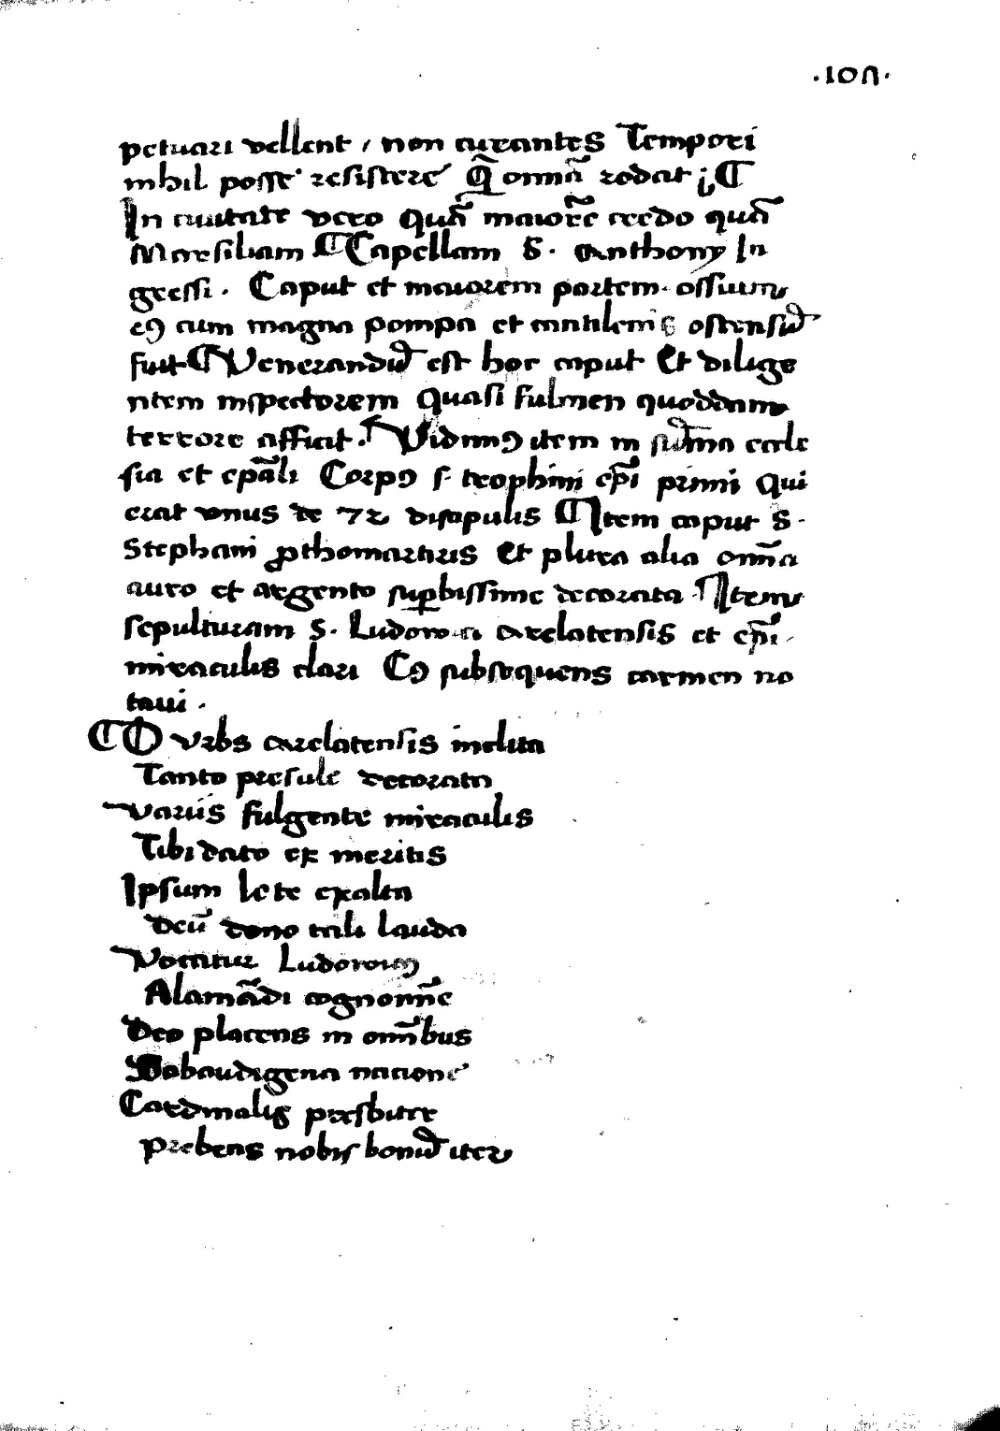 ·107·
petuari vellent / non curantes Tempori
nihil posse resistere Q̄ om̄ia rodat ¡ ¶
In ciuitate vero quā maiorē credo quā
Marsiliam ¶ Capellam S. Anthony In
gressi. Caput et maiorem partem ossium
eꝯ cum magna pompa et cantilenis ostensū
fuit ¶ Venerandū est hoc caput Et dilige
ntem inspectorem quasi fulmen quoddam
terrore afficit. ¶ Vidimꝯ item in sūma eccle
sia et ep̄ali Corpꝯ s. trophimi ep̄i primi qui
erat vnus de 72 discipulis ¶ Item caput S.
Stephani ꝓthomartiris Et plura alia om̄ia
auro et argento suꝑbissime decorata. ¶ Item
sepulturam S. Ludowici arelatensis et ep̄i
miraculis clari Cꝯ subsequens carmen no
taui.
¶ O vrbs arelatensis inclita
Tanto presule decorata
Variis fulgente miraculis
Tibi dato ex meritis
Ipsum lete exalta
deū dono tali lauda
Vocatur Ludovicꝯ
Alamādi cognomīe
Deo placens in om̄ibus
Sabaudigena nacione
Cardinalis presbiter
Prebens nobis bonū iter